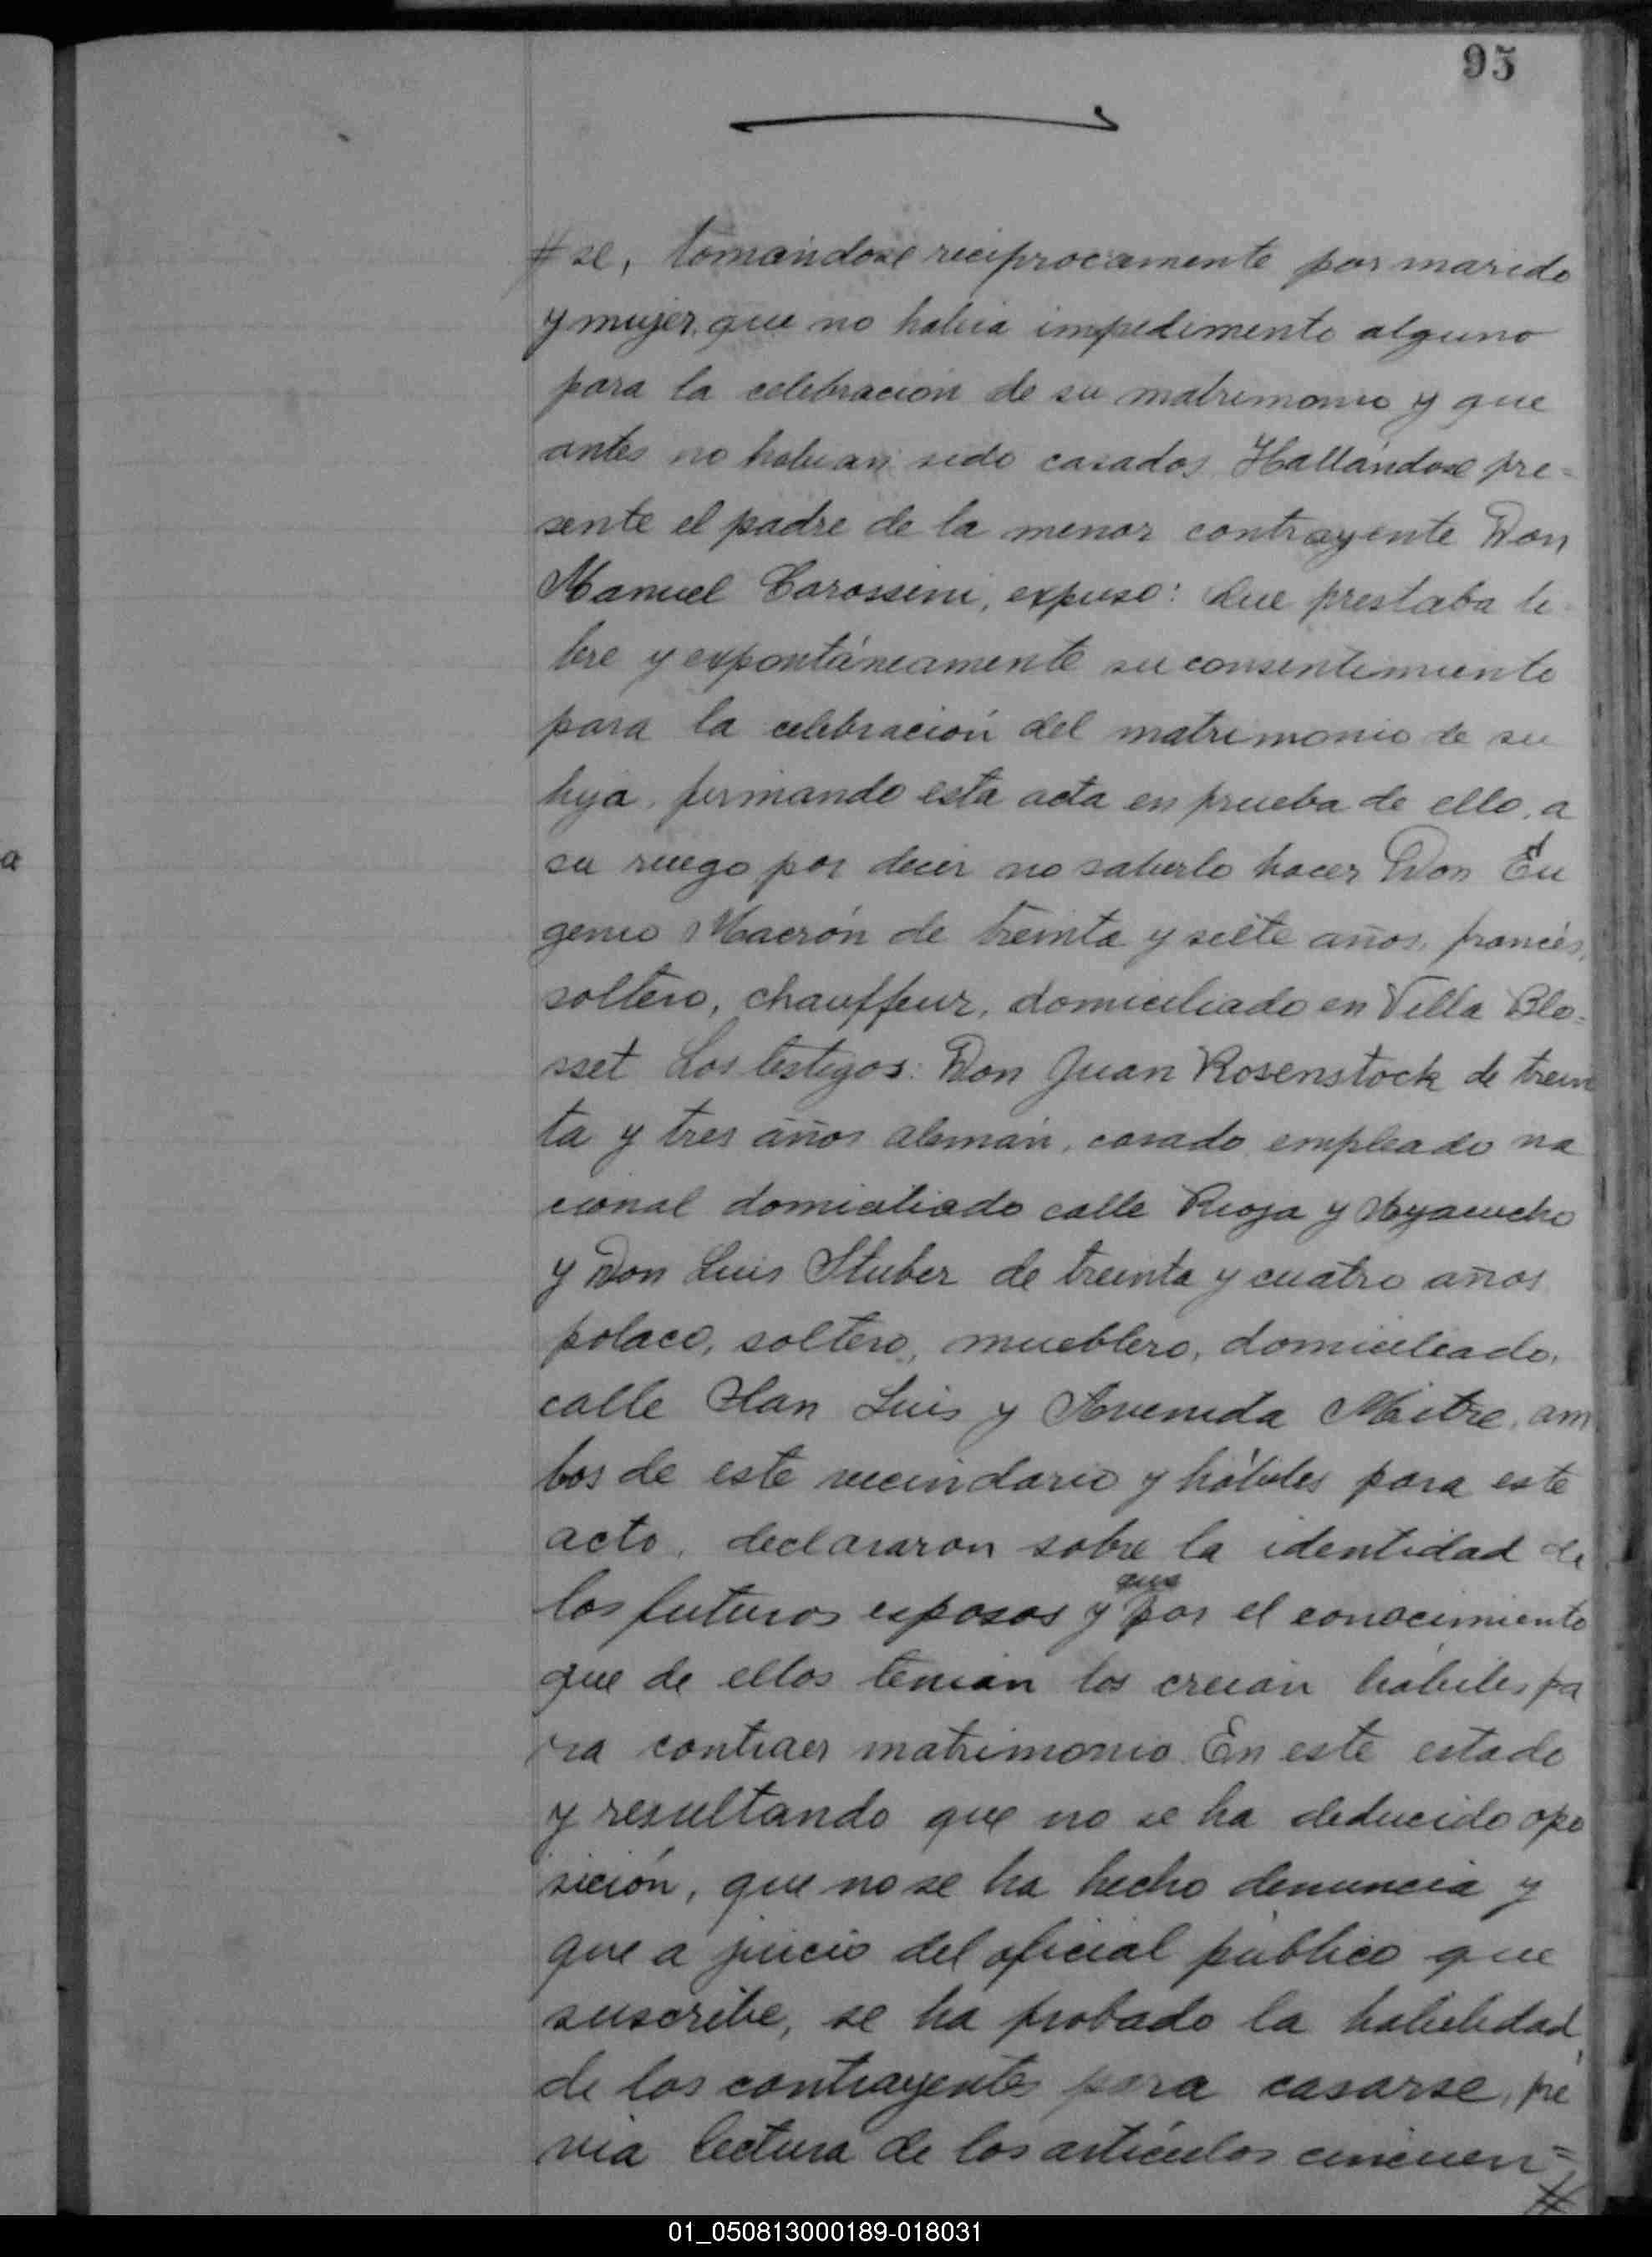 95
# se, tomándose recíprocamente por marido
y mujer, que no había impedimento alguno
para la celebración de su matrimonio y que
antes no habían sido casados. Hallándose pre=
sente el padre de la menor contrayente Don
Manuel Carossini, expuso: Que prestaba li
bre y expontáneamente su consentimiento
para la celebración del matrimonio de su
hija, firmando esta acta en prueba de ello, a
su ruego por decir no saberlo hacer Don Eu
genio Macrón de treinta y siete años, francés,
soltero, chauffeur, domiciliado en Villa Blo=
sset Los testigos: Don Juan Rosenstock de trein
ta y tres años alemán, casado, empleado na
cional domiciliado calle Rioja y Ayacucho
y Don Luis Stuber de treinta y cuatro años
polaco, soltero, mueblero, domiciliado,
calle San Luis y Avenida Mitre, am
bos de este vecindario y hábiles para este
acto, declararon sobre la identidad de
los futuros esposos y que por el conocimiento
que de ellos tenían los creían hábiles pa
ra contraer matrimonio. En este estado
y resultando que no se ha deducido opo
sición, que no se ha hecho denuncia y
que a juicio del oficial público que
suscribe, se ha probado la habilidad
de los contrayentes para casarse, pre
via lectura de los artículos cincuen=
#
a
01_050813000189-018031